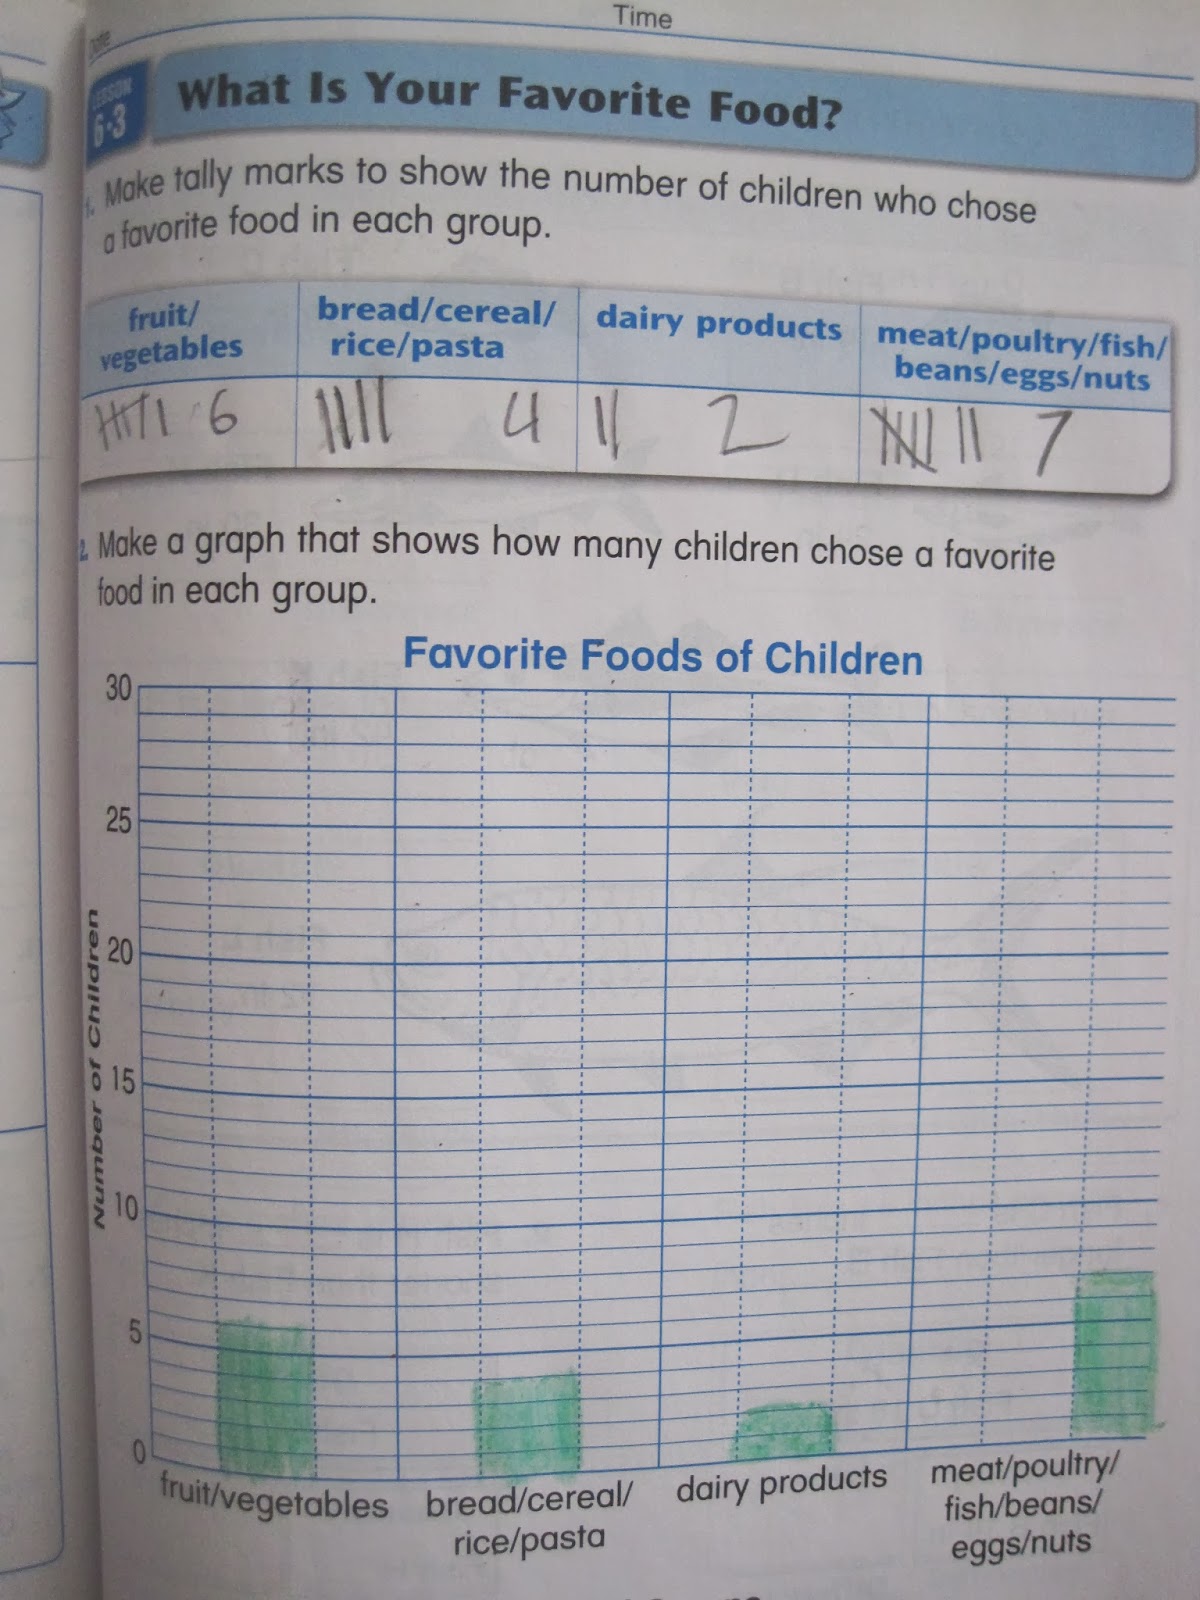 Time
Date
LESSON
6·3
What Is Your Favorite Food?
1. Make tally marks to show the number of children who chose
a favorite food in each group.
fruit/
vegetables
bread/cereal/
rice/pasta
dairy products
meat/poultry/fish/
beans/eggs/nuts
6
4
2
7
2. Make a graph that shows how many children chose a favorite
food in each group.
Favorite Foods of Children
Number of Children
30
25
20
15
10
5
0
fruit/vegetables
bread/cereal/
rice/pasta
dairy products
meat/poultry/
fish/beans/
eggs/nuts